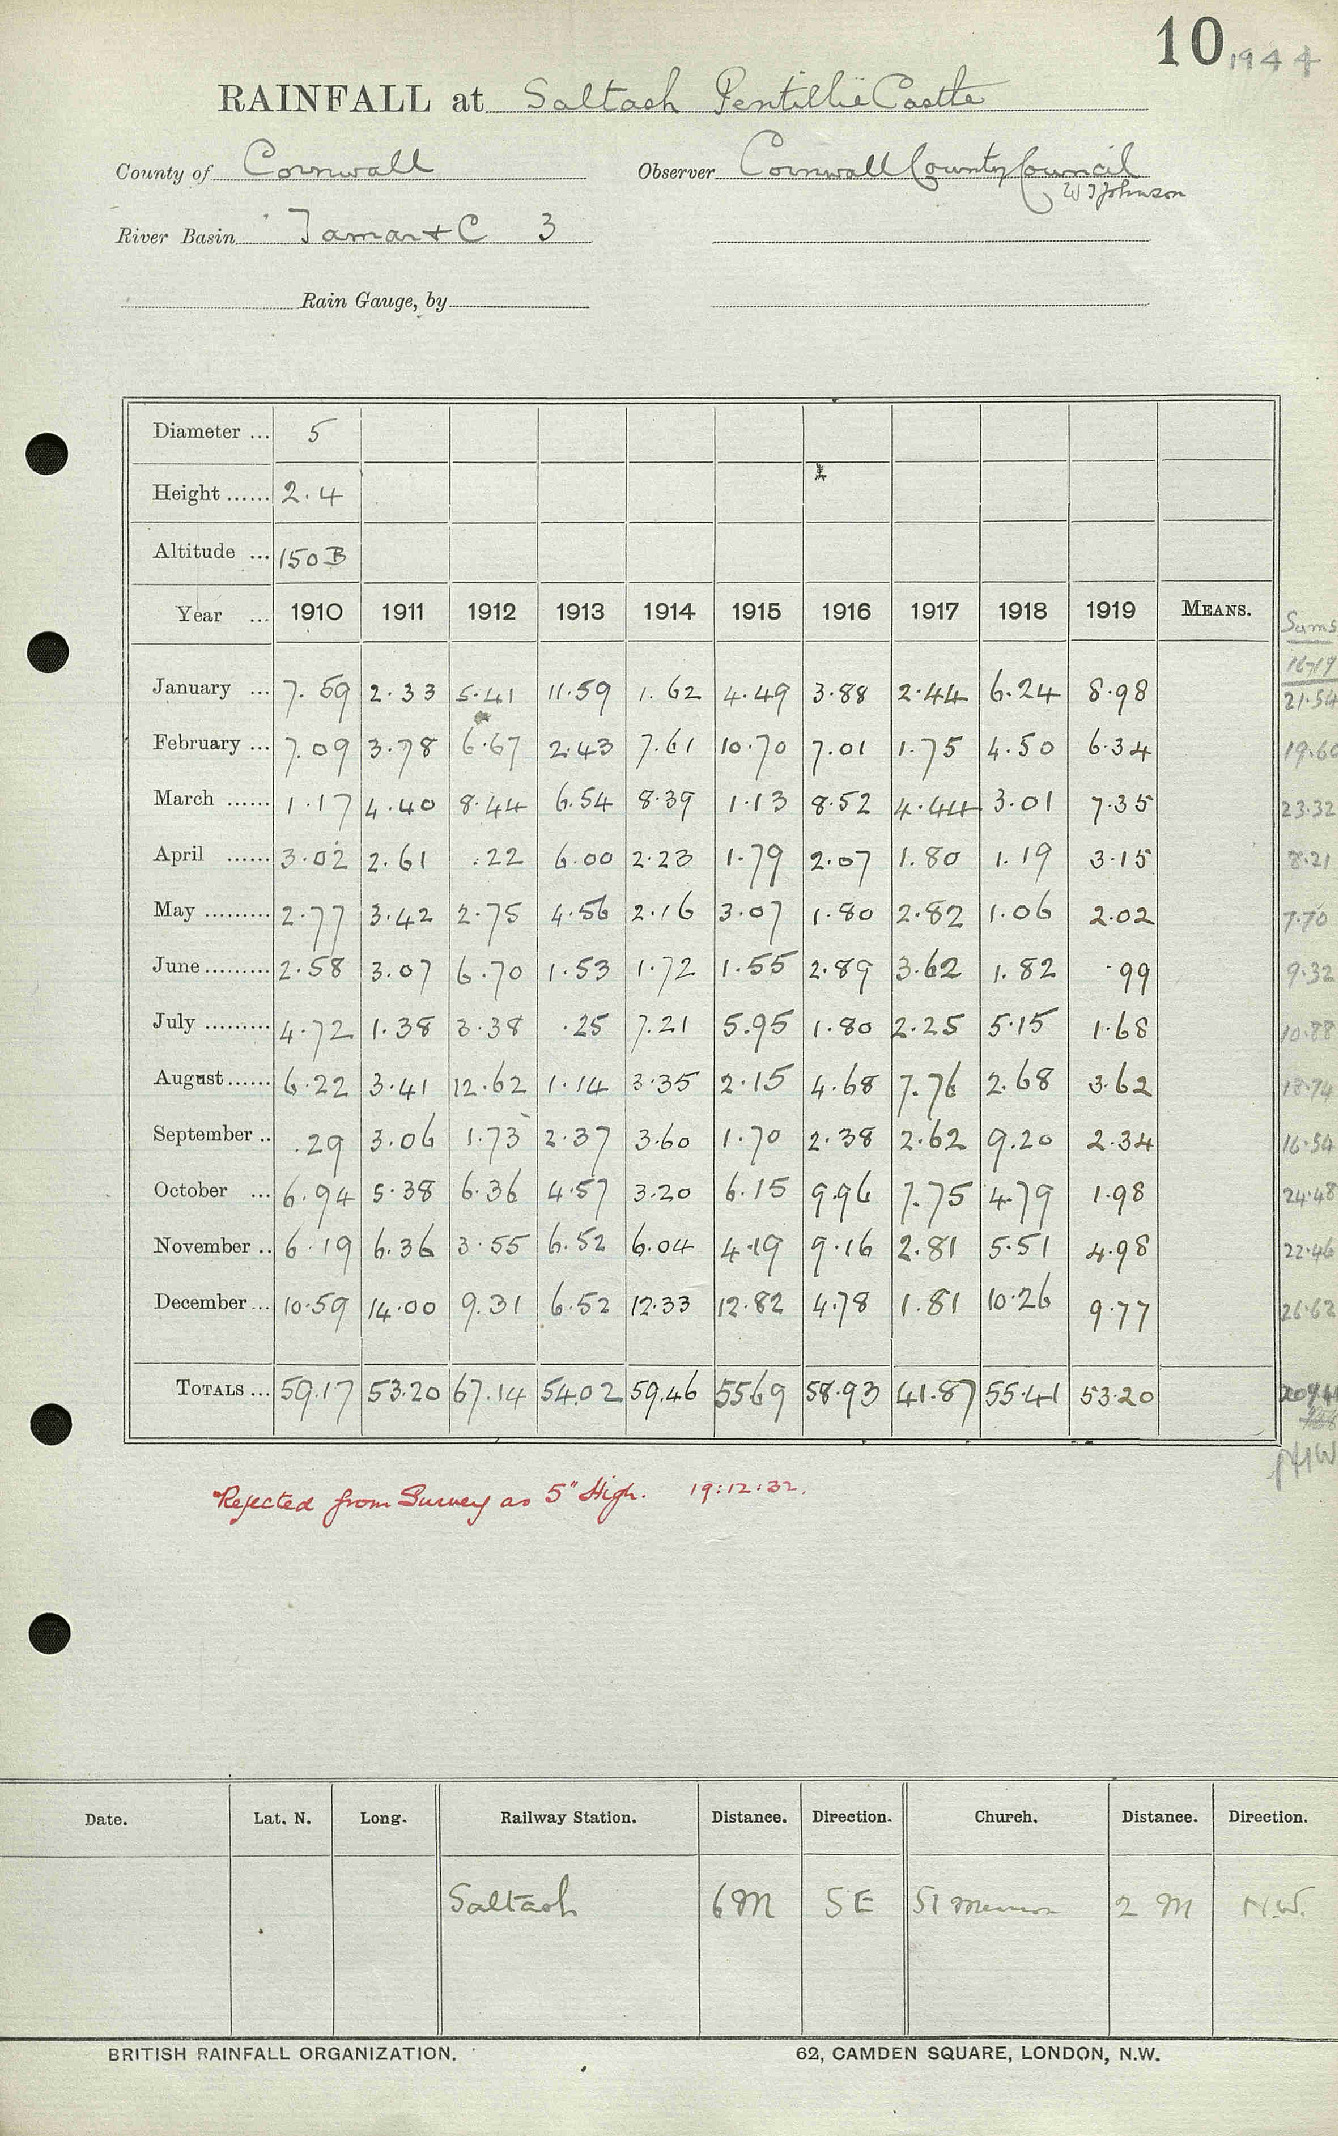 10 1944
RAINFALL at Saltash Pentillie Castle
County of Cornwall Observer Cornwall County Council
W J Johnson
River Basin Tamar + C 3
Rain Gauge, by
Diameter ... 5
Height ...... 2.4
Altitude ... 150 B
Year ... 1910 1911 1912 1913 1914 1915 1916 1917 1918 1919 MEANS. Sums
16-19
January ... 7.59 2.33 5.41 11.59 1.62 4.49 3.88 2.44 6.24 8.98 21.54
February ... 7.09 3.78 6.67 2.43 7.61 10.70 7.01 1.75 4.50 6.34 19.60
March ...... 1.17 4.40 8.44 6.54 8.39 1.13 8.52 4.44 3.01 7.35 23.32
April ...... 3.02 2.61 .22 6.00 2.23 1.79 2.07 1.80 1.19 3.15 8.21
May ......... 2.77 3.42 2.75 4.56 2.16 3.07 1.80 2.82 1.06 2.02 7.70
June ......... 2.58 3.07 6.70 1.53 1.72 1.55 2.89 3.62 1.82 .99 9.32
July ......... 4.72 1.38 3.38 .25 7.21 5.95 1.80 2.25 5.15 1.68 10.88
August ...... 6.22 3.41 12.62 1.14 3.35 2.15 4.68 7.76 2.68 3.62 18.74
September .. .29 3.06 1.73 2.37 3.60 1.70 2.38 2.62 9.20 2.34 16.54
October ... 6.94 5.38 6.36 4.57 3.20 6.15 9.96 7.75 4.79 1.98 24.48
November .. 6.19 6.36 3.55 6.52 6.04 4.19 9.16 2.81 5.51 4.98 22.46
December ... 10.59 14.00 9.31 6.52 12.33 12.82 4.78 1.81 10.26 9.77 26.62
TOTALS ... 59.17 53.20 67.14 54.02 59.46 55.69 58.93 41.87 55.41 53.20 209.41
Rejected from Survey as 5" High. 19:12:32.
Date. Lat. N. Long. Railway Station. Distance. Direction. Church. Distance. Direction.
Saltash 6 M SE St 2 M N.W.
BRITISH RAINFALL ORGANIZATION. 62, CAMDEN SQUARE, LONDON, N.W.